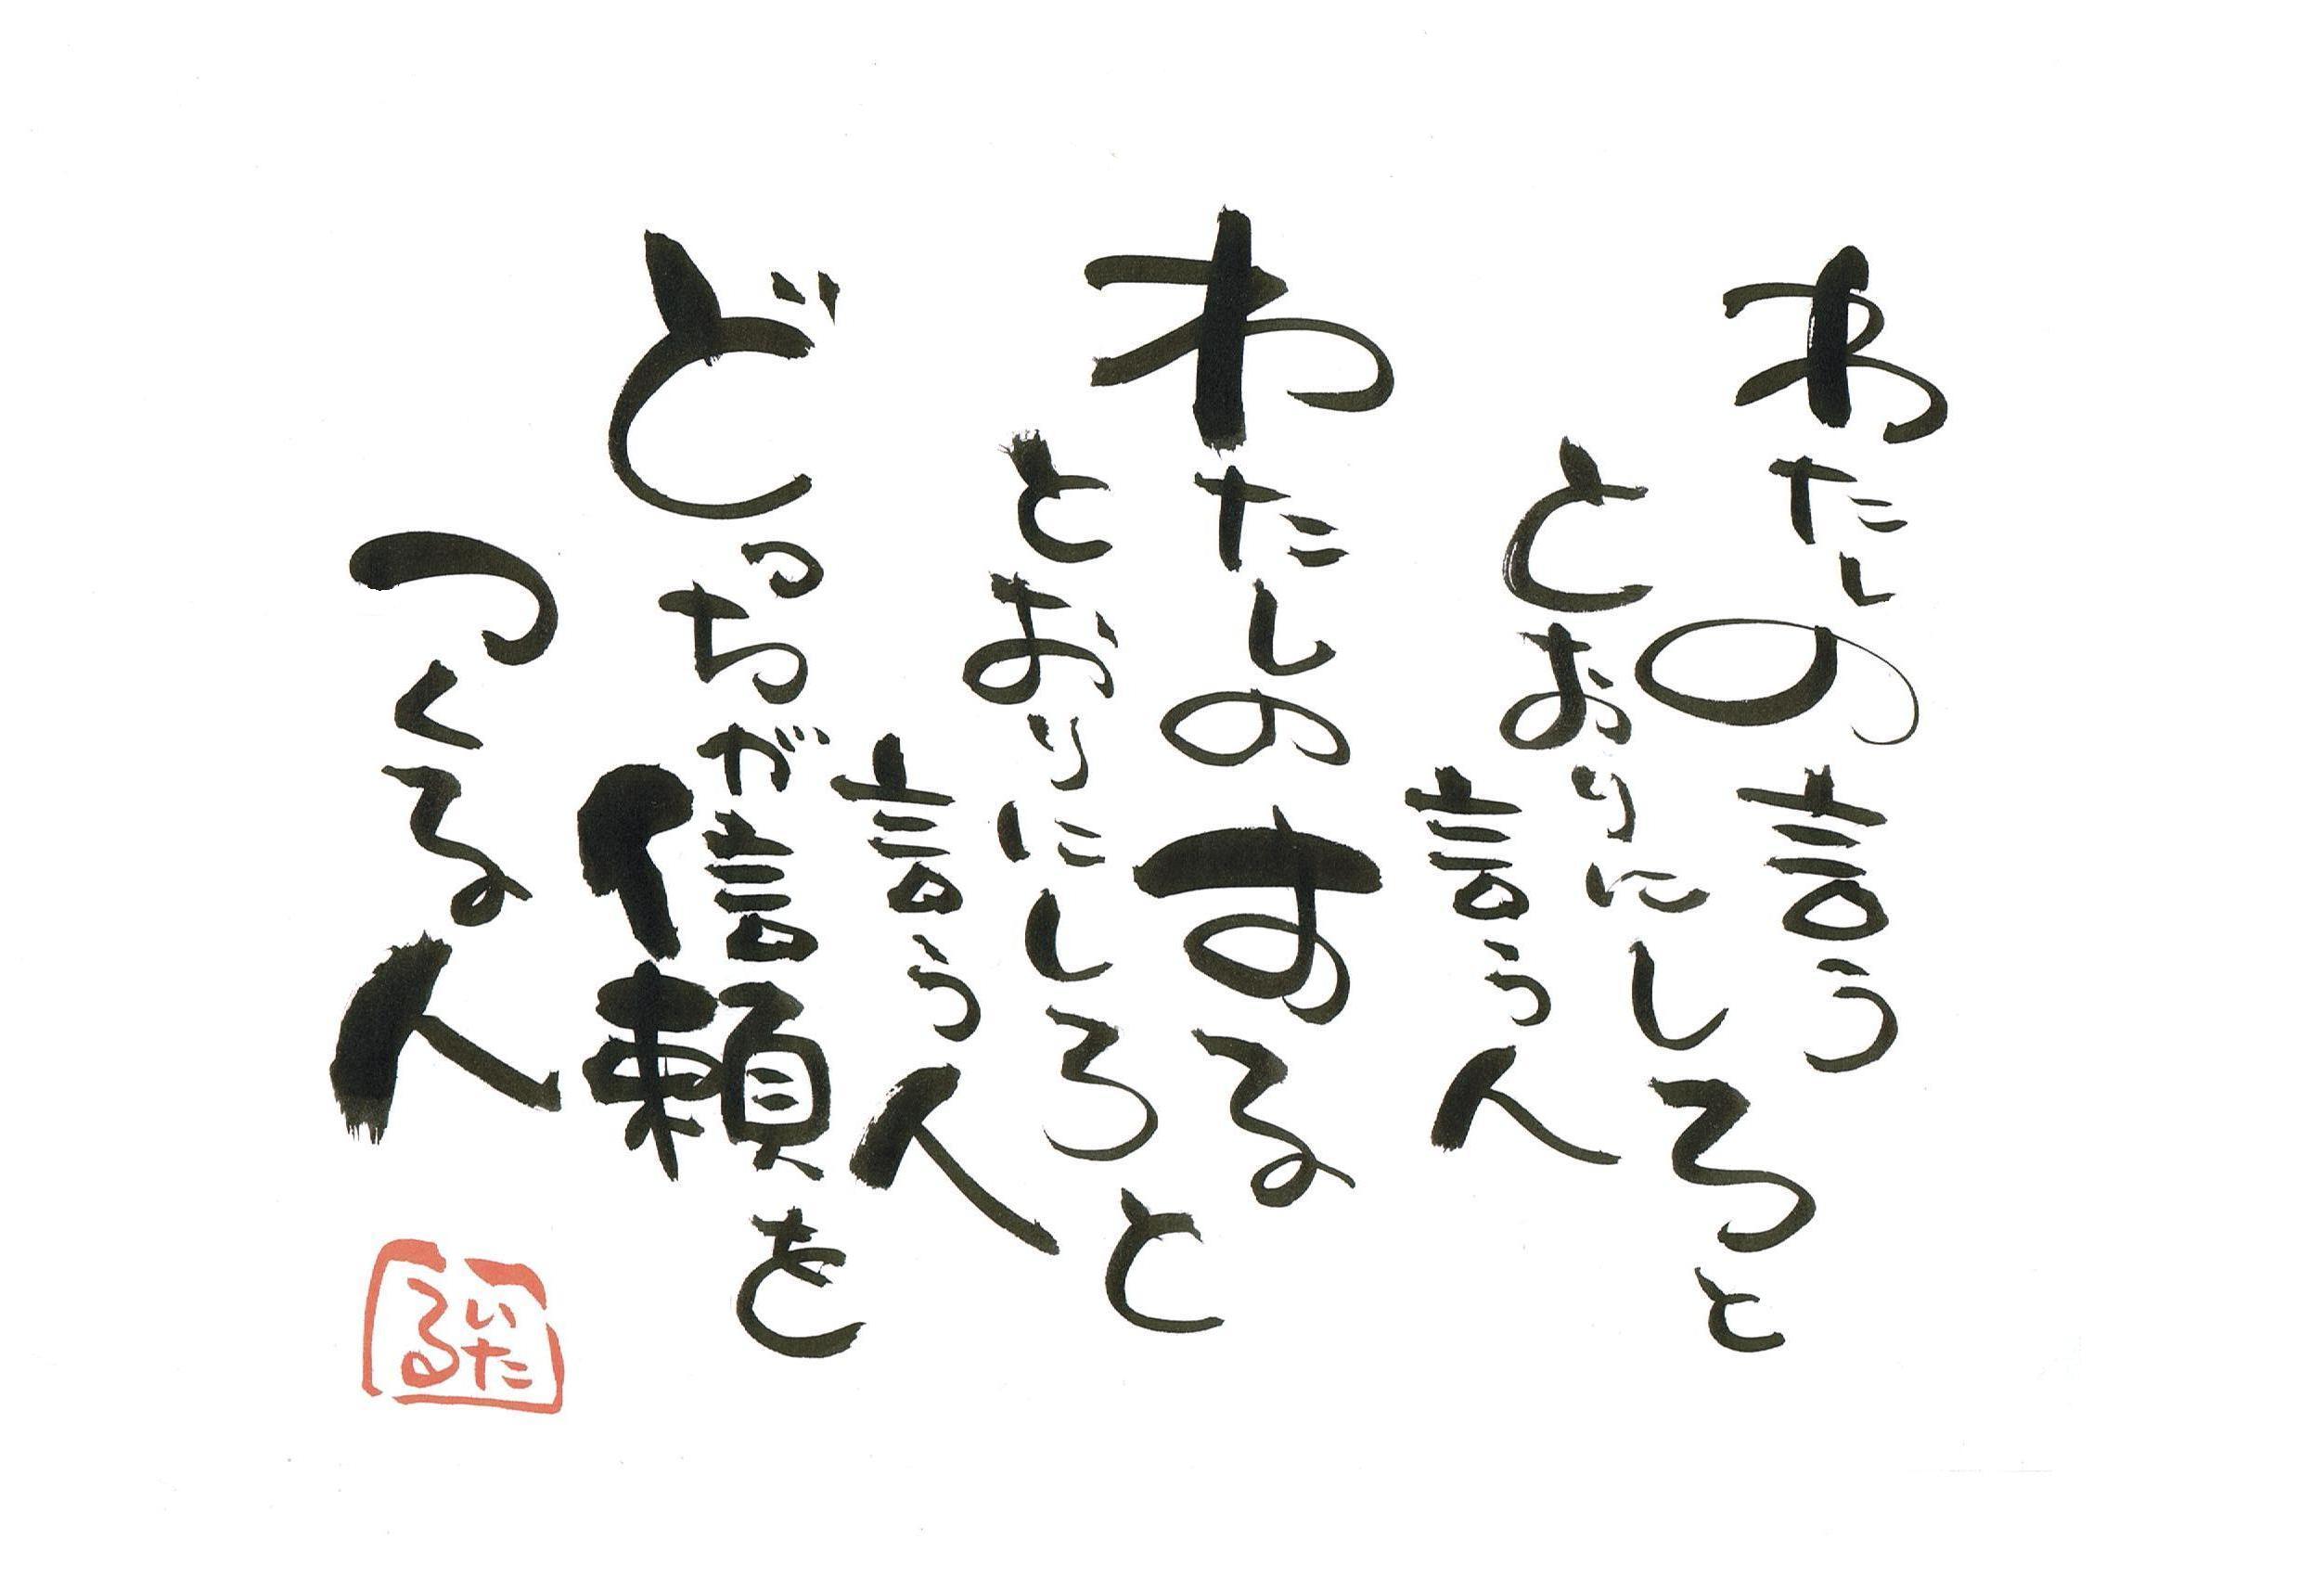 わたしの言う
とおりにしろと
言う人
わたしのする
とおりにしろと
言う人
どっちが信頼を
つくる人
いた
る